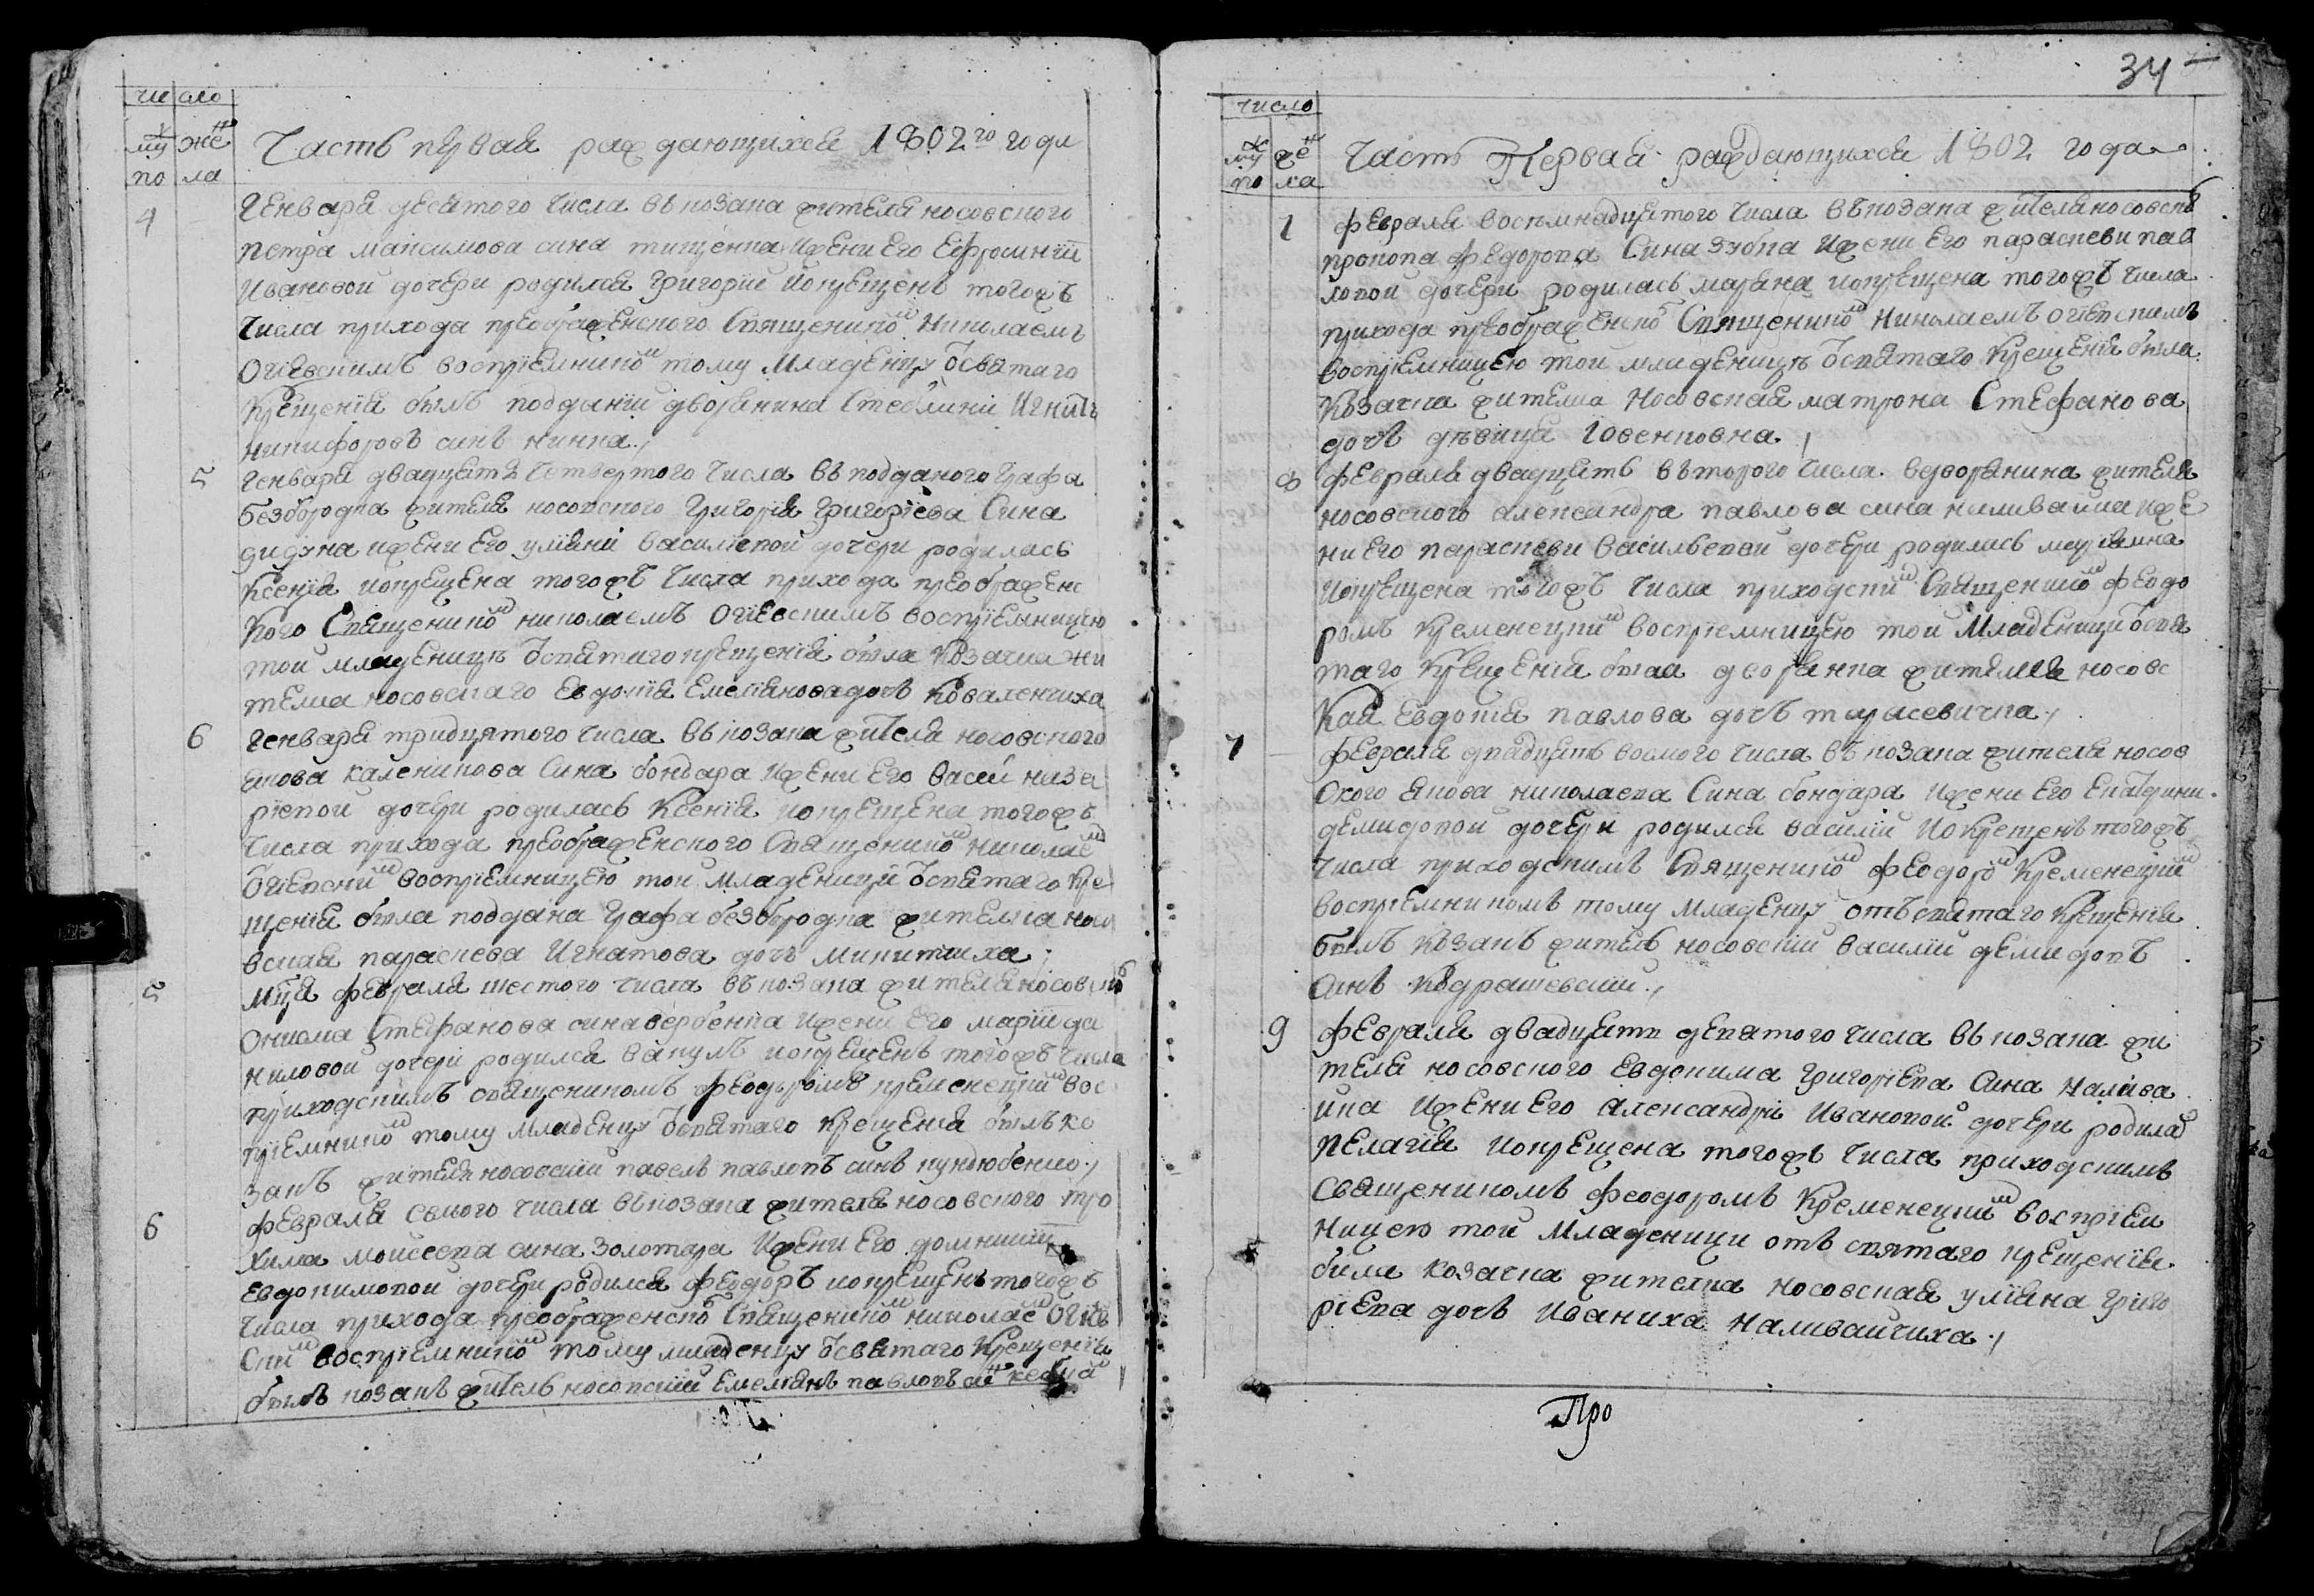 число
муж жен
по ла
Часть первая раждающихся 1802го года
4
Генваря десятого числа въ козака жителя носовского
петра максимова сина тищенка ижени Его Ефросинїи
Ивановои дочери родился Григорїи Iокрещенъ тогожъ
числа прихода преображенского Священиком Николаемъ
Огiевскимъ воспрiемником тому Младенцу ѿсвятаго
Крещенiя былъ подданїи дворянина Стеблини Игнатъ
никифоровъ синъ
5
Генваря двадцять Четвертого Числа въ подданого Графа
безбородка жителя носовского Григорїя Григорїева Сина
дидука ижени Его улїянi василїевои дочери родилась
Ксенiя iокрещена тогожъ Числа прихода преображенс
кого Священиком николаемъ Огiевскимъ воспрїемницею
тои младеницѣ ѿсвятаго крещенiя была козачка жи
телка носовскаго Евдокїя Емелїянова дочъ Коваленчиха
6
Генваря тридцятого числа въ козака жителя носовского
якова каленикова Сина бондара Ижени Его васси наза
рїевои дочери родилась Ксенїя iокрещена тогожъ
Числа прихода преображенского Священиком николаем
Огiевским воспрїемницею тои Младеници ѿсвятаго Кре
щенiя была поддана Графа безбородка жителка носо
вская параскева Игнатова дочъ Микитиха
5
Мца февраля шестого числа въ козака жителя носовско
Онисма Стефанова сина вербенка Ижени Его марїи да
ниловой дочери родился вакулъ iокрещенъ тогожъ Числа
приходскимъ священикомъ феодоромъ кременецким вос
прїемником тому Младенцу ѿсвятаго Крещенiя былъ ко
закъ жителя носовскїи павелъ павловъ синъ
6
февраля семого числа въ козака жителя носовского тро
хима моисеева сина золотара Ижени Его домникїи
Евдокимовои дочери родился феодоръ iокрещенъ тогожъ
числа прихода преображенско Священиком николаем Огiев
ским воспрїемником тому младенцу ѿсвятаго Крещенiя
былъ козакъ житель носовскiи Емелїянъ павловъ син
34
число
муж жен
по ла
Часть Первая раждающихся 1802 года
7
февраля восемнадцятого числа въ козака жителя носовско
прокопа федорова Сина зубка Ижени Его параскеви пав
ловои дочери родилась марѣна iокрещена тогожъ числа
прихода преображенско Священиком Николаемъ Огiевскимъ
воспрїемницею тои младеницѣ ѿсвятаго Крещенiя была
Козачка жителка Носовская матрона Стефанова
дочъ дѣвица Ювенковна
8
февраля двадцять въторого числа вдворянина жителя
носовского александра павлова сина наливайка иже
ни Его параскеви васильевои дочери родилась марїямна
Iокрещена тогожъ числа приходским Священиком феодо
ромъ Кременецким воспрїемницею тои Младеници ѿсвя
таго Крещенiя была дворянка жителка носовс
кая Евдокїя павлова дочъ тарасевичка
7
февраля двадцять восмого числа въ козака жителя носов
ского якова николаева Сина бондара Ижени Его Екатерини
демидовои дочери родился василїи Iокрещенъ тогожъ
Числа приходскимъ Священиком феодором Кременецким
воспрїемникомъ тому Младенцу отъ святаго крещенiя
былъ козакъ житель носовскiи василїи демидовъ
синъ Кодрашевскїи
9
февраля двадцять девятого числа въ козака жи
теля носовского Евдокима Григорїева Сина Налива
ика Ижени Его Александри Ивановой дочери родилас
Пелагiя iокрещена тогожъ числа приходскимъ
священикомъ феодоромъ Кременецким воспрїем
ницею тои Младеници отъ святаго крещенїя
била козачка жителка носовская улїяна Григо
рїева дочъ Иваниха Наливайчиха
Про